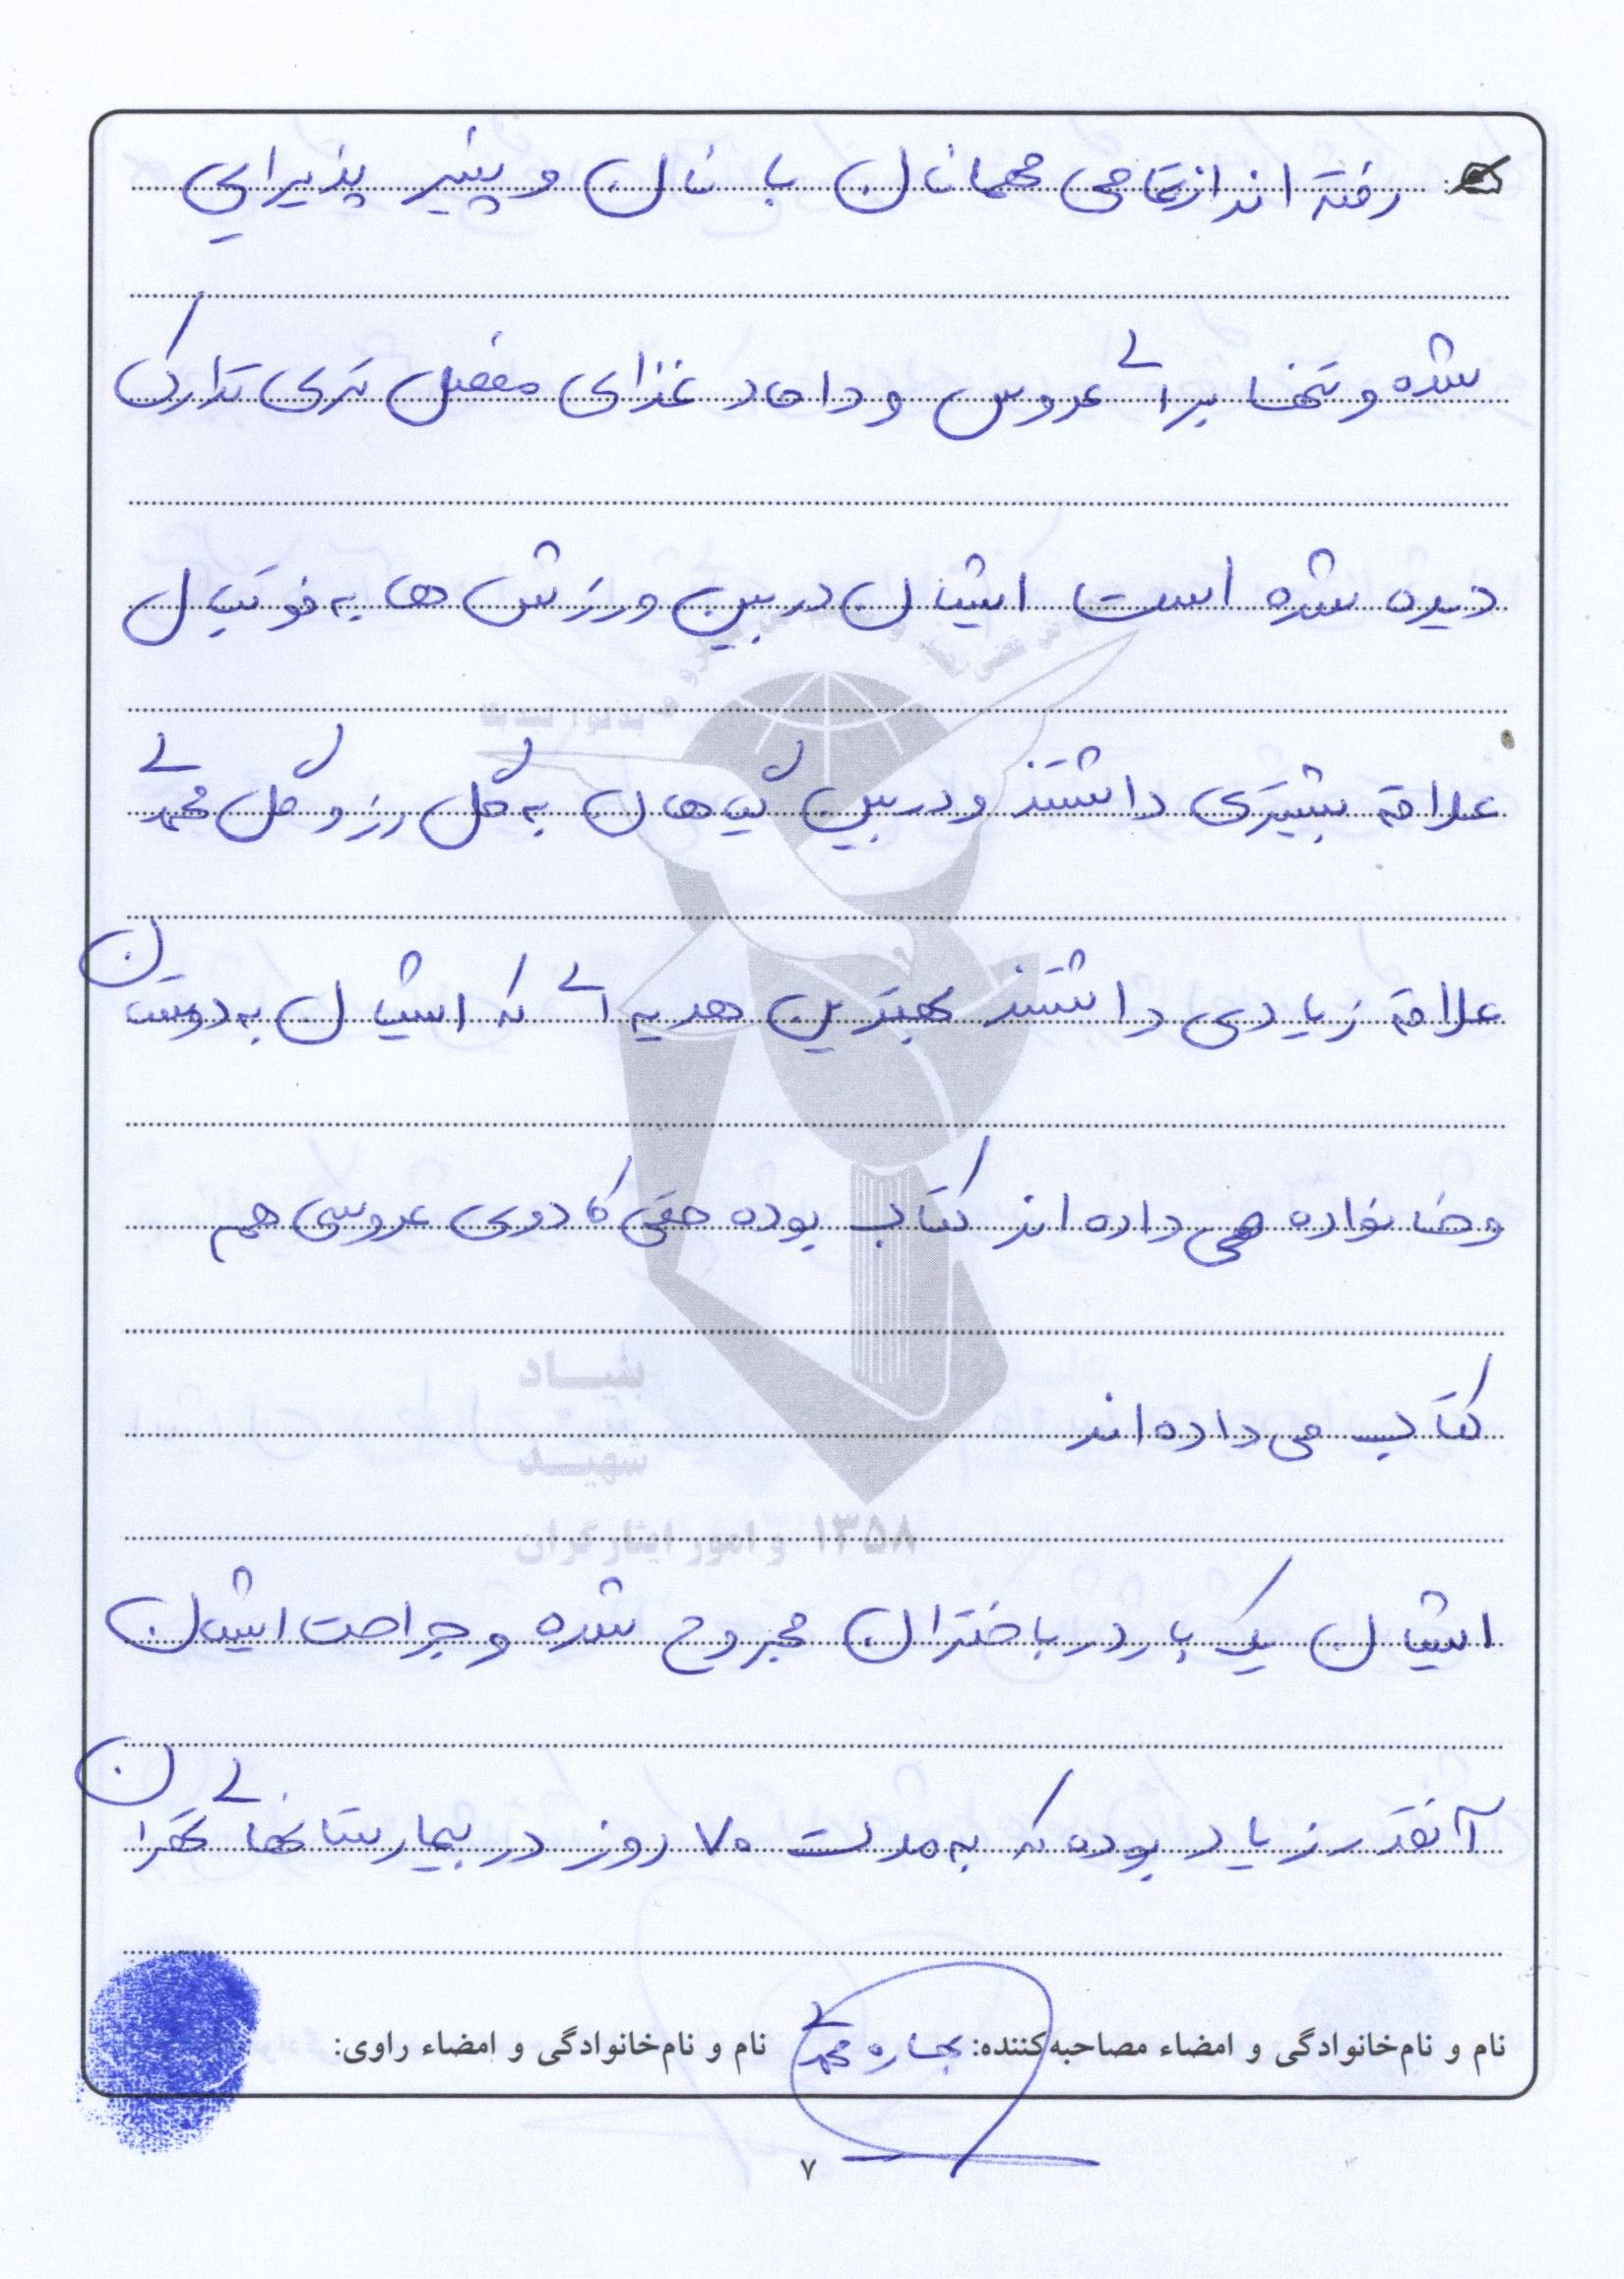 رفته اند از تمامی مهمانان با نان و پنیر پذیرایی
شده و تنها برای عروس و داماد غذای مفصل تری تدارک
دیده شده است ایشان در بین ورزش ها به فوتبال
علاقه بیشتری داشتند و در بین گیاهان به گل رز و گل محمدی
علاقه زیادی داشتند بهترین هدیه ای که ایشان به دوستان
و خانواده می داده اند کتاب بوده حتی کادوی عروسی هم
کتاب می داده اند
بنیاد
شهید
و امور ایثارگران ۱۳۵۸
ایشان یک بار در باختران مجروح شده و جراحت ایشان
آنقدر زیاد بوده که به مدت ۷۰ روز در بیمارستانهای تهران
نام و نام‌خانوادگی و امضاء مصاحبه‌کننده: محمدی نام و نام‌خانوادگی و امضاء راوی:
۷